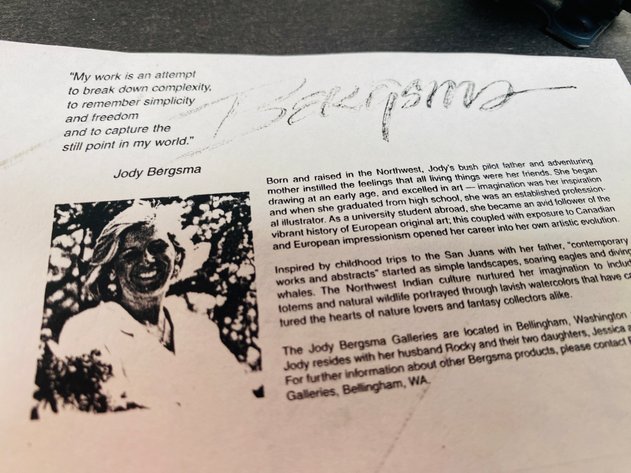 "My work is an attempt
to break down complexity,
to remember simplicity
and freedom
and to capture the
still point in my world."
Jody Bergsma
Bergsma
Born and raised in the Northwest, Jody's bush pilot father and adventuring
mother instilled the feelings that all living things were her friends. She began
drawing at an early age, and excelled in art — imagination was her inspiration
and when she graduated from high school, she was an established profession-
al illustrator. As a university student abroad, she became an avid follower of the
vibrant history of European original art; this coupled with exposure to Canadian
and European impressionism opened her career into her own artistic evolution.
Inspired by childhood trips to the San Juans with her father, "contemporary
works and abstracts" started as simple landscapes, soaring eagles and diving
whales. The Northwest Indian culture nurtured her imagination to includ
totems and natural wildlife portrayed through lavish watercolors that have ca
tured the hearts of nature lovers and fantasy collectors alike.
The Jody Bergsma Galleries are located in Bellingham, Washington
Jody resides with her husband Rocky and their two daughters, Jessica a
For further information about other Bergsma products, please contact
Galleries, Bellingham, WA.